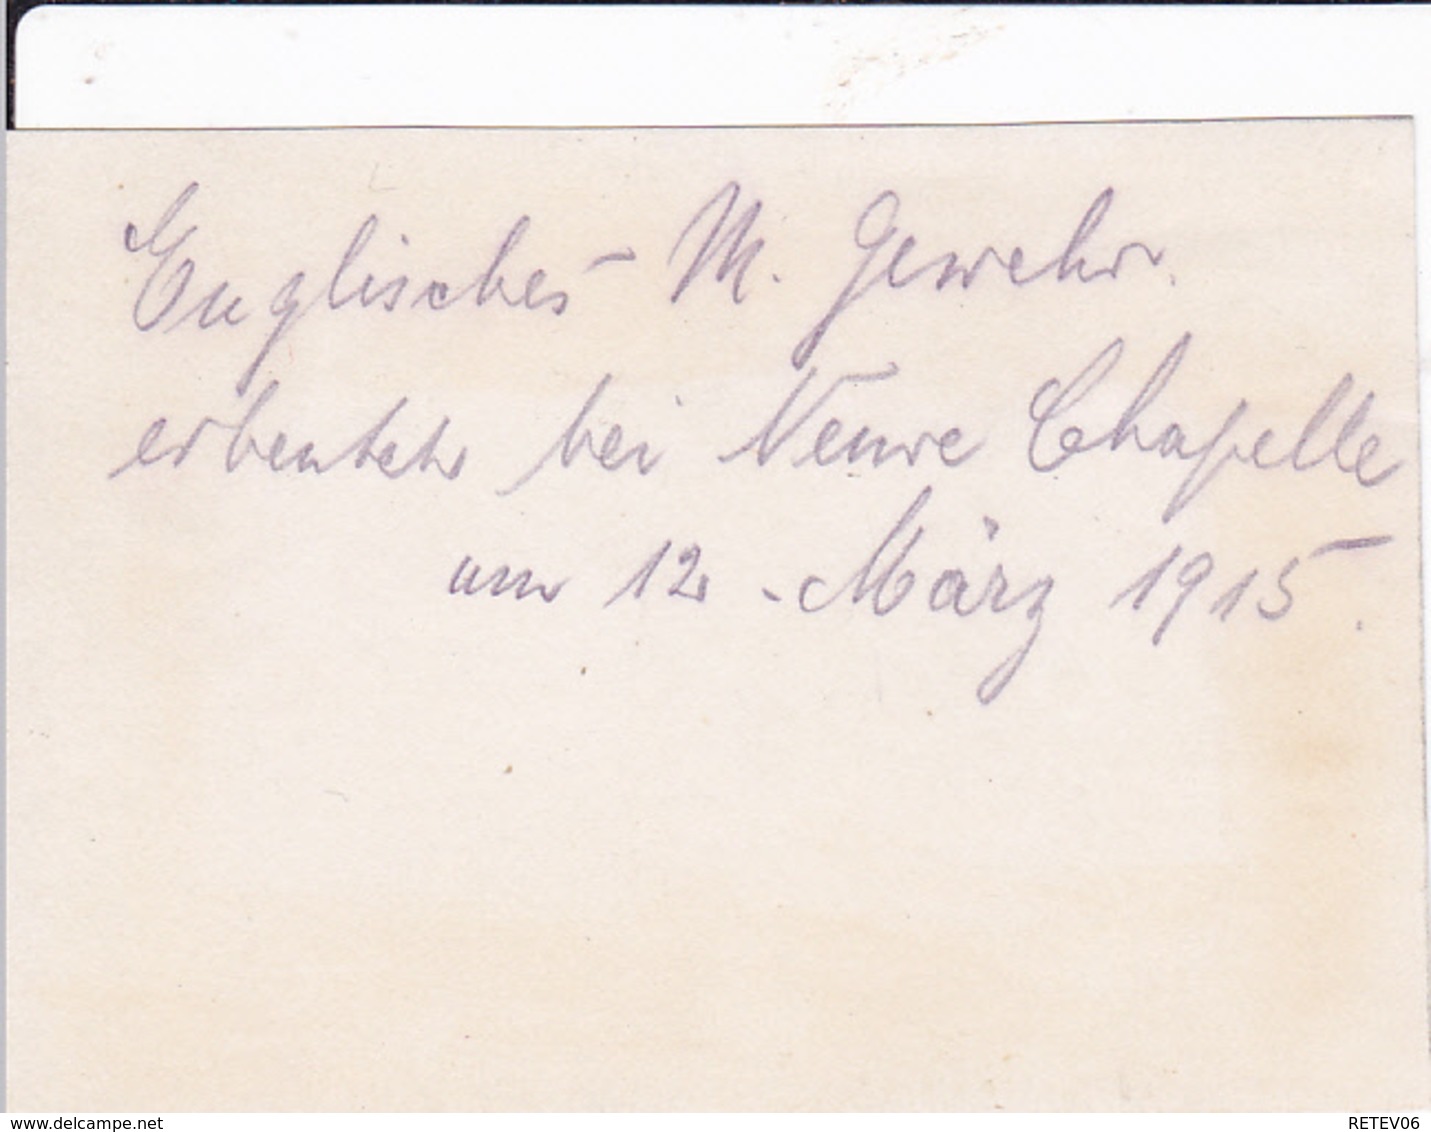 Englisches M. Gewehr.
erbeutet bei Neuve Chapelle
am 12. März 1915.
www.delcampe.net
RETEV06